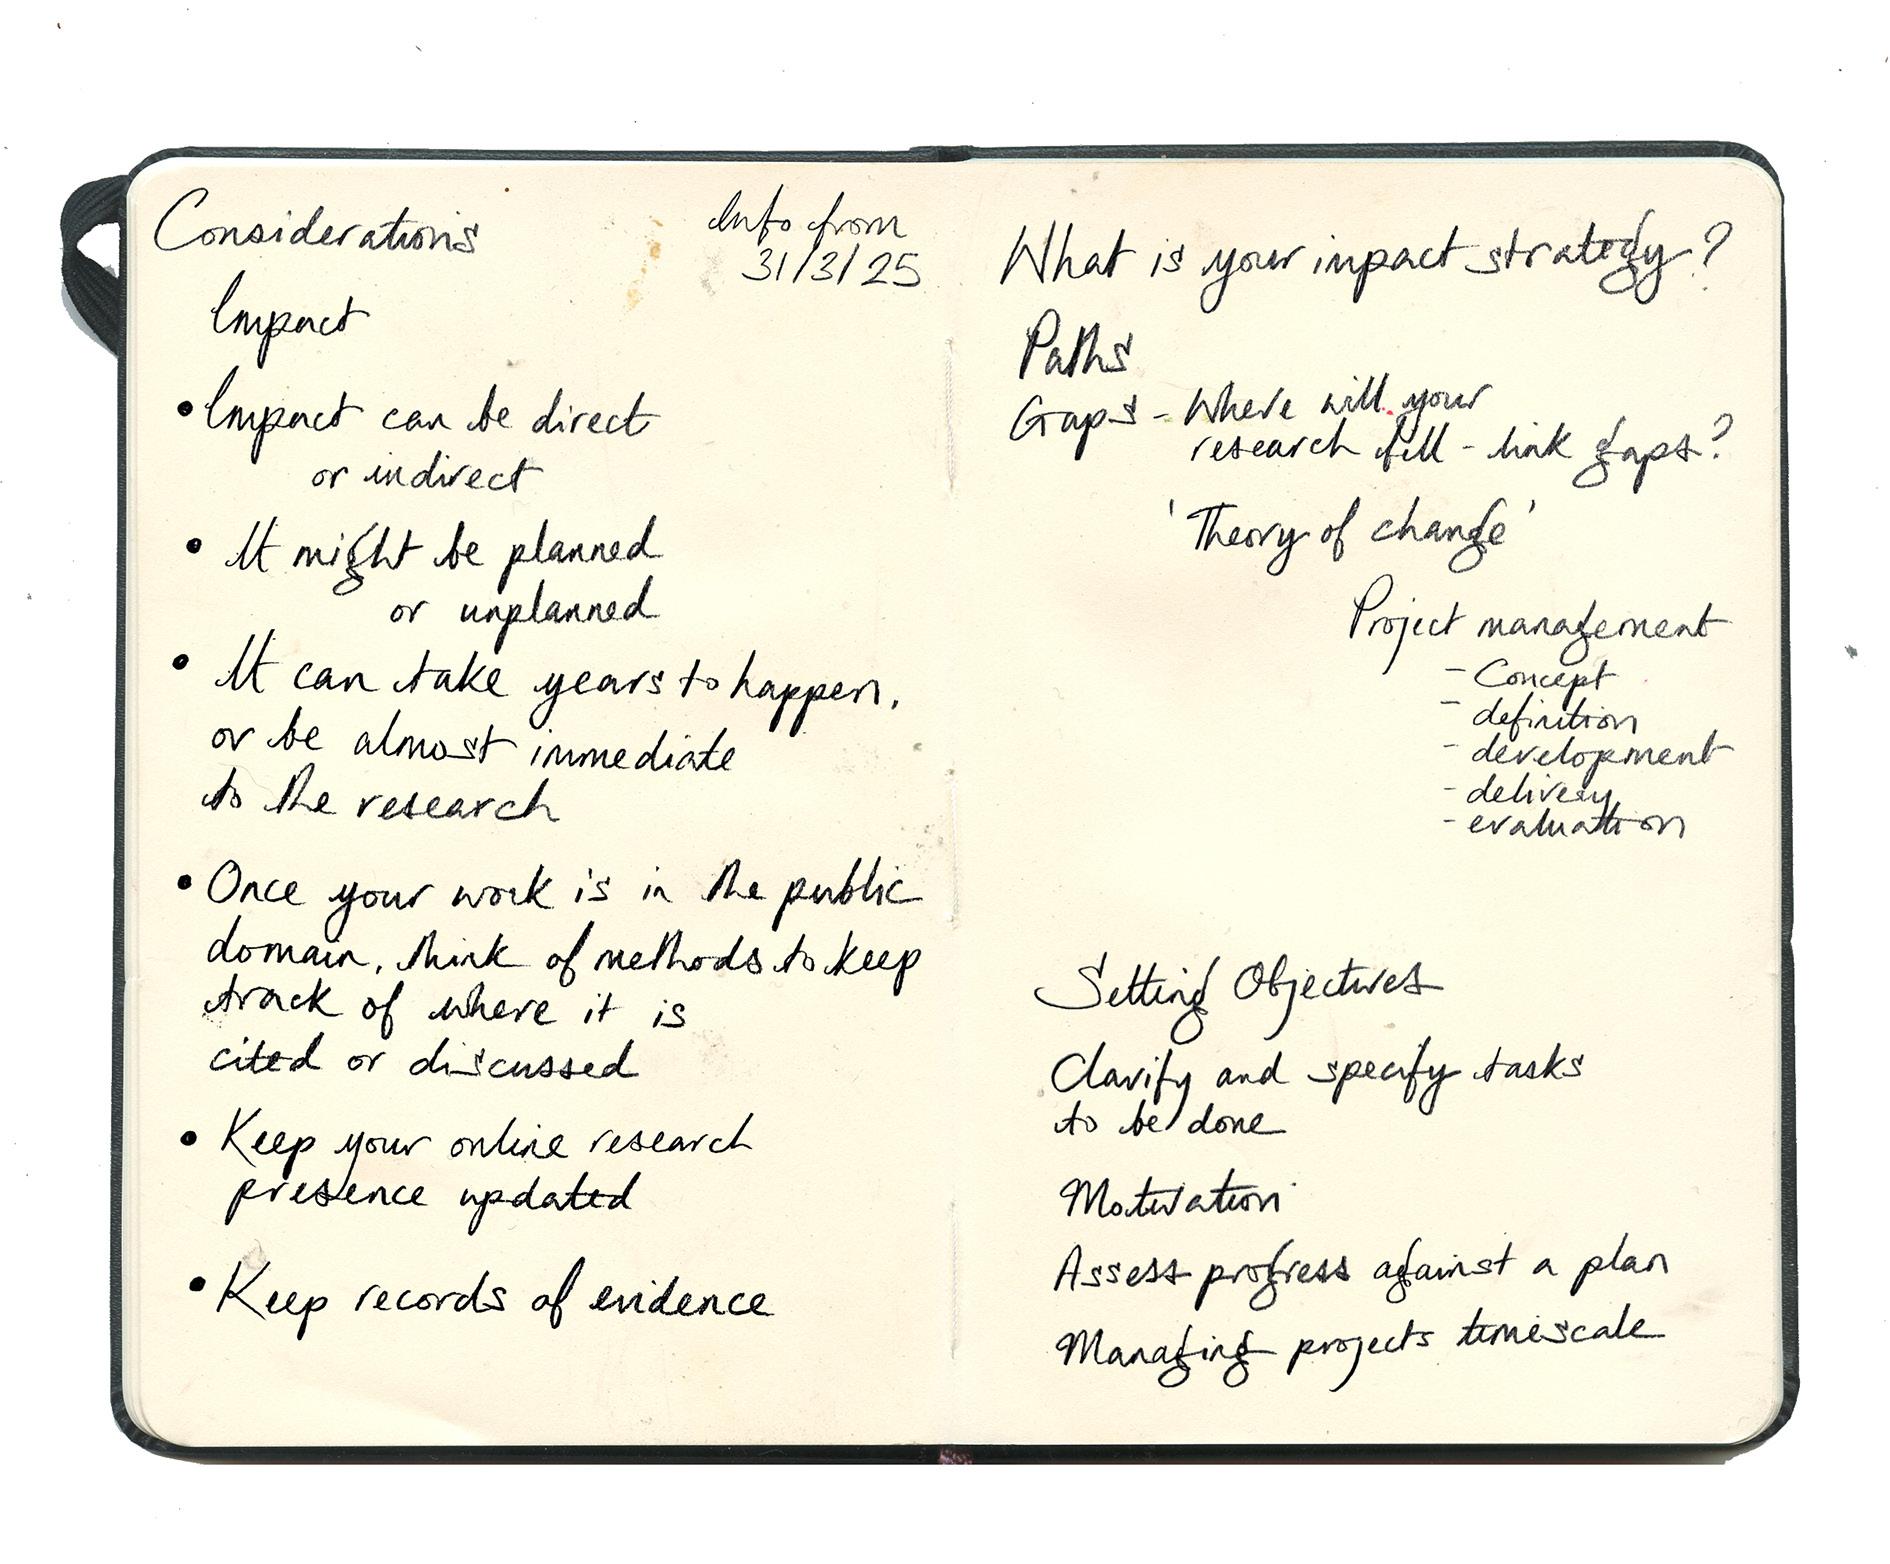 Considerations
Info from
31/3/25
Impact
• Impact can be direct
or indirect
• It might be planned
or unplanned
• It can take years to happen,
or be almost immediate
to the research
• Once your work is in the public
domain, think of methods to keep
track of where it is
cited or discussed
• Keep your online research
presence updated
• Keep records of evidence
What is your impact strategy?
Paths
Gaps - Where will your
research fill - link gaps?
'Theory of change'
Project management
- Concept
- definition
- development
- delivery
- evaluation
Setting Objectives
Clarify and specify tasks
to be done
Motivation
Assess progress against a plan
Managing projects timescale